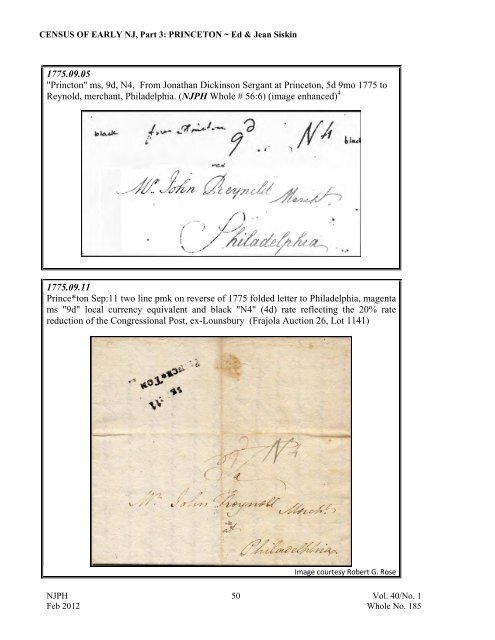 CENSUS OF EARLY NJ, Part 3: PRINCETON ~ Ed & Jean Siskin
1775.09.05
"Princton" ms, 9d, N4, From Jonathan Dickinson Sergant at Princeton, 5d 9mo 1775 to
Reynold, merchant, Philadelphia. (NJPH Whole # 56:6) (image enhanced)4
black from Princeton 9d N4 black
red
Mr. John Reynold Mercht.
Philadelphia
1775.09.11
Prince*ton Sep:11 two line pmk on reverse of 1775 folded letter to Philadelphia, magenta
ms "9d" local currency equivalent and black "N4" (4d) rate reflecting the 20% rate
reduction of the Congressional Post, ex-Lounsbury (Frajola Auction 26, Lot 1141)
PRINCE*TON
SE :11
9d N4
Mr. John Reynold Mercht.
at
Philadelphia
Image courtesy Robert G. Rose
NJPH 50 Vol. 40/No. 1
Feb 2012 Whole No. 185